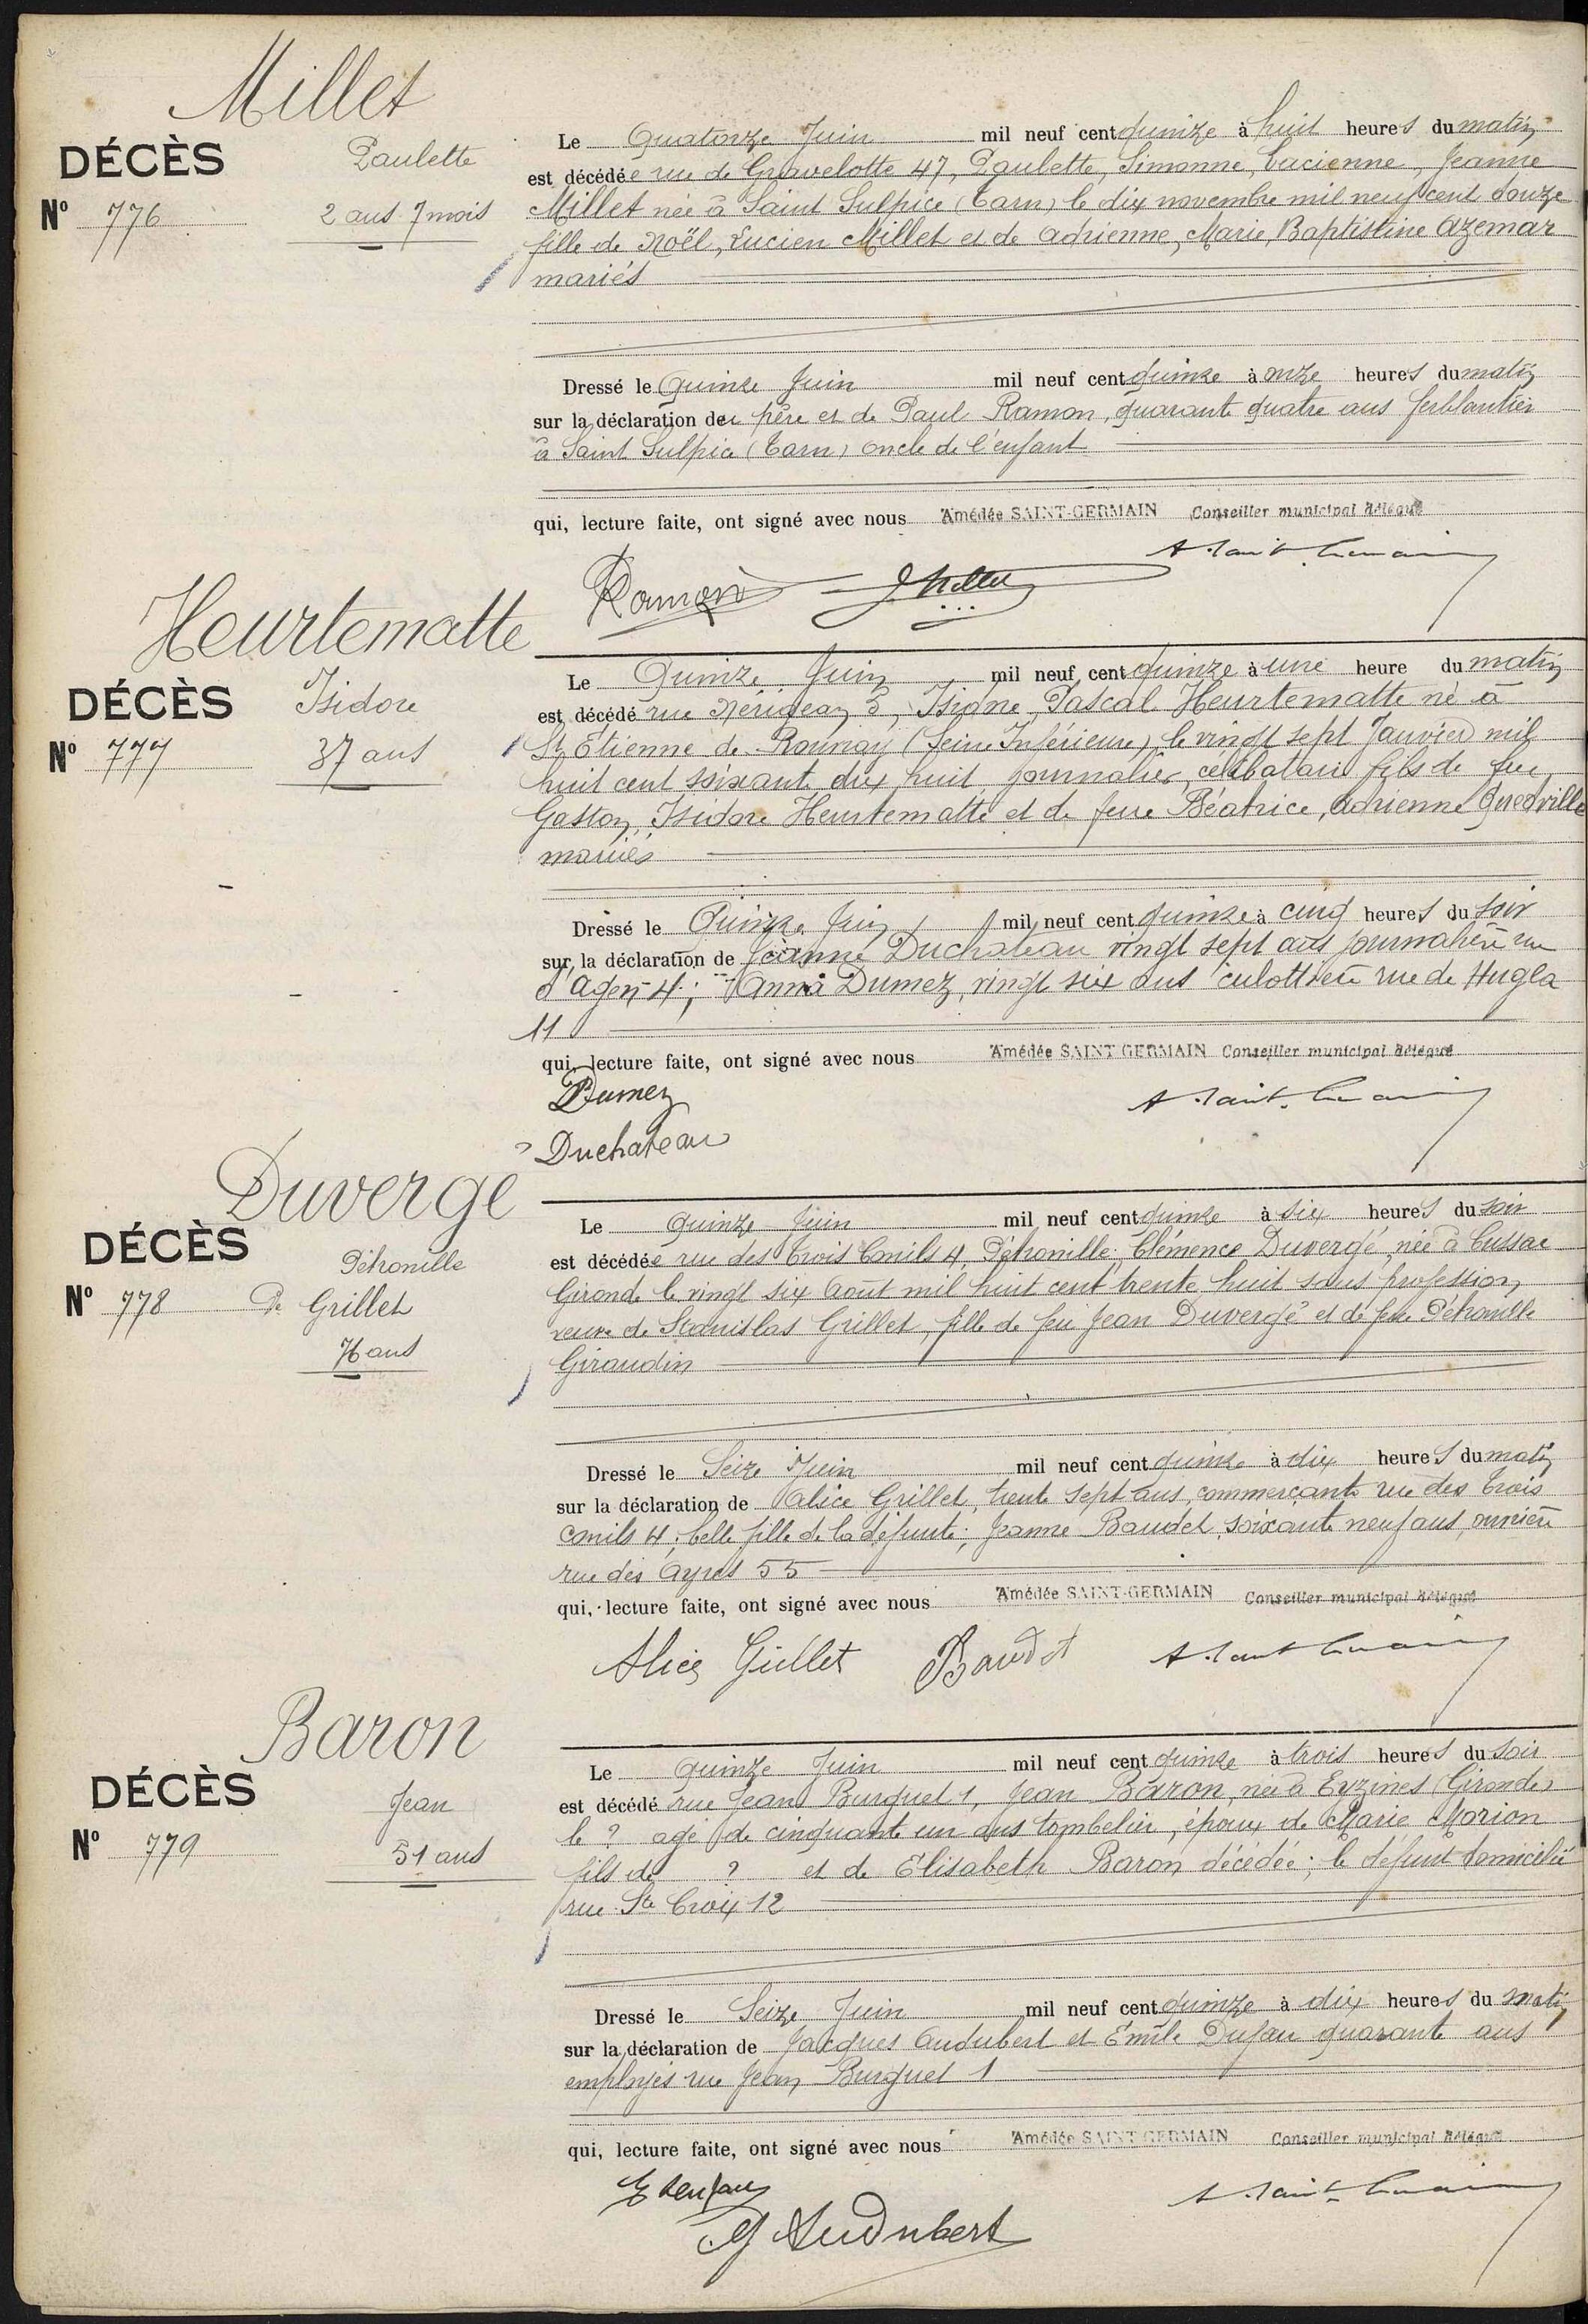 Millet
DÉCÈS
Paulette
N° 776
2 ans 7 mois
Le Quatorze Juin mil neuf cent quinze à huit heures du matin
est décédée rue de Gravelotte 47, Paulette, Simonne, Lucienne, Jeanne
Millet née à Saint Sulpice (Tarn) le dix novembre mil neuf cent douze
fille de Noël, Lucien Millet et de Adrienne, Marie, Baptistine Azemar
mariés
Dressé le Quinze Juin mil neuf cent quinze à onze heures du matin
sur la déclaration du père et de Paul Ramon, quarante quatre ans ferblantier
à Saint Sulpice (Tarn) oncle de l'enfant
qui, lecture faite, ont signé avec nous Amédée SAINT-GERMAIN Conseiller municipal délégué
Ramon Millet
Heurtematte
DÉCÈS
Isidore
N° 777
37 ans
Le Quinze Juin mil neuf cent quinze à une heure du matin
est décédé rue Nérigean Isidore, Pascal Heurtematte né à
St Etienne de Rouvray (Seine Inférieure) le vingt sept Janvier mil
huit cent soixante dix huit journalier, célibataire fils de feu
Gaston, Isidore Heurtematte et de feue Béatrice, Adrienne Quedville
mariés
Dressé le Quinze Juin mil neuf cent quinze à cinq heures du soir
sur la déclaration de Jeanne Duchateau vingt sept ans journalière rue
d'Agen 4; Anna Dumez, vingt six ans culottière rue de Hugla
11
qui, lecture faite, ont signé avec nous Amédée SAINT GERMAIN Conseiller municipal délégué
Dumez
Duchateau
Duvergé
DÉCÈS
Pétronille
N° 778
Ve Grillet
76 ans
Le quinze Juin mil neuf cent quinze à six heures du soir
est décédée rue des Trois Conils 4, Pétronille, Clémence Duvergé, née à Cussac
Gironde le vingt six Août mil huit cent trente huit sans profession,
veuve de Stanislas Grillet, fille de feu Jean Duvergé et de feue Pétronille
Giraudin
Dressé le Seize Juin mil neuf cent quinze à dix heures du matin
sur la déclaration de Alice Grillet, trente sept ans, commerçante rue des Trois
Conils 4, belle fille de la défunte; Jeanne Baudet, soixante neuf ans, ouvrière
rue des Ayres 55
qui, lecture faite, ont signé avec nous Amédée SAINT-GERMAIN Conseiller municipal délégué
Alice Grillet Baudet
Baron
DÉCÈS
Jean
N° 779
51 ans
Le quinze Juin mil neuf cent quinze à trois heures du soir
est décédé rue Jean Burguet 1, Jean Baron, né à Eyzines (Gironde)
le ? agé de cinquante un ans tombelier, époux de Marie Morion
fils de ? et de Élisabeth Baron décédée; le défunt domicilié
rue Ste Croix 12
Dressé le Seize Juin mil neuf cent quinze à dix heures du matin
sur la déclaration de Jacques Audubert et Émile Dufau quarante ans
employés rue Jean Burguet 1
qui, lecture faite, ont signé avec nous Amédée SAINT GERMAIN Conseiller municipal délégué
J Audubert